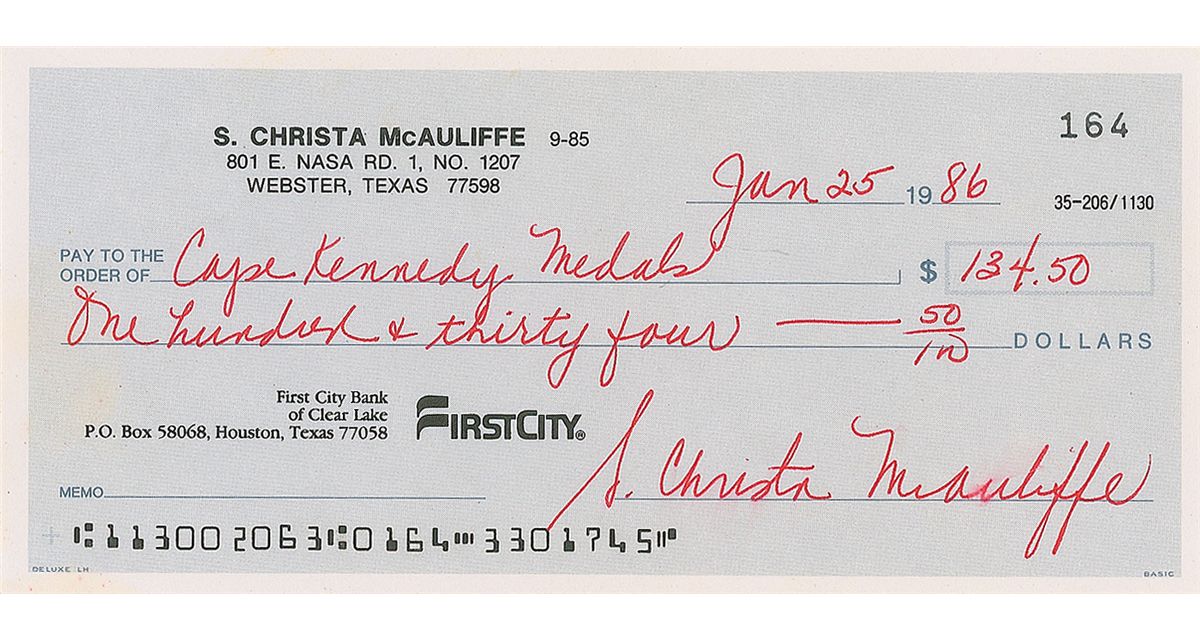 S. CHRISTA McAULIFFE 9-85
801 E. NASA RD. 1, NO. 1207
WEBSTER, TEXAS 77598
164
Jan 25 19 86
35-206/1130
PAY TO THE
ORDER OF Cape Kennedy Medals $ 134.50
One hundred & thirty four 50/100 DOLLARS
First City Bank
of Clear Lake
P.O. Box 58068, Houston, Texas 77058
FIRSTCITY®
S. Christa McAuliffe
MEMO
⑆113002063⑆0164⑈3301745⑈
DELUXE LH BASIC